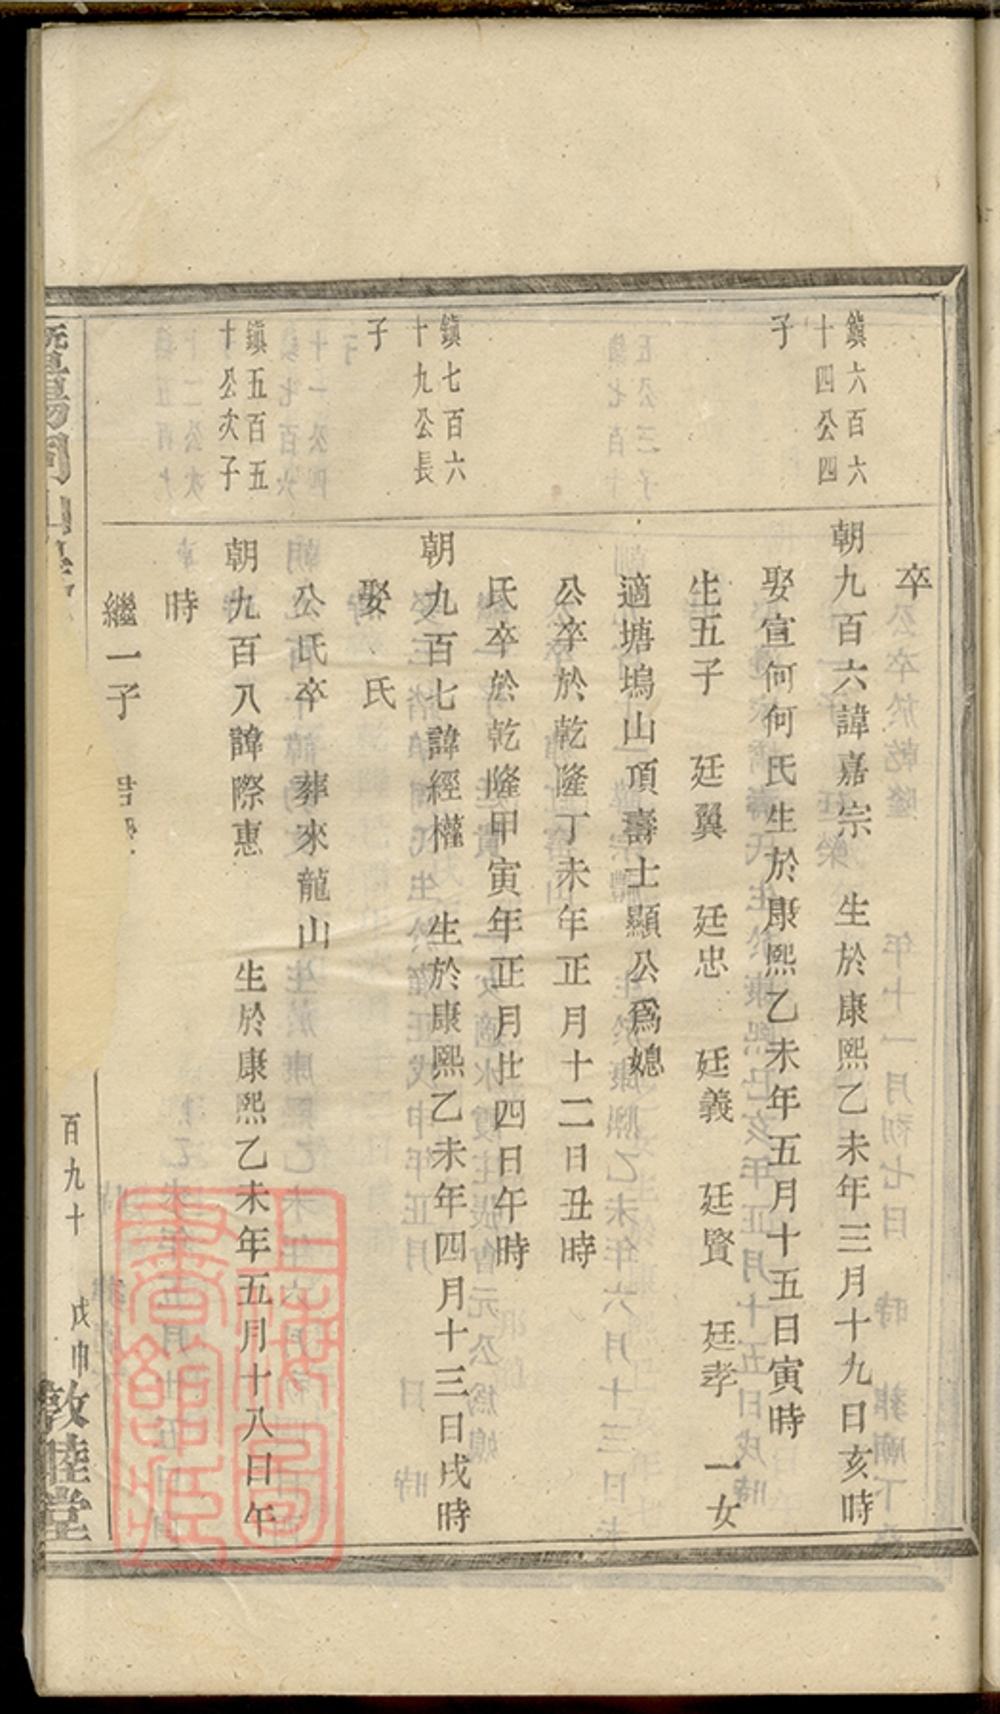 卒
鎮六百六
十四公四
子
朝九百六諱嘉宗 生於康熙乙未年三月十九日亥時
娶宣何何氏生於康熙乙未年五月十五日寅時
生五子 廷翼 廷忠 廷義 廷賢 廷孝 一女
適塘塢山頂壽士顯公爲媳
公卒於乾隆丁未年正月十二日丑時
氏卒於乾隆甲寅年正月廿四日午時
鎮七百六
十九公長
子
朝九百七諱經權 生於康熙乙未年四月十三日戌時
娶 氏
公氏卒 葬來龍山
鎮五百五
十公次子
朝九百八諱際惠 生於康熙乙未年五月十八日午
時
繼一子
暨陽同山
百九十 戊申 敦睦堂
上海圖
書館藏